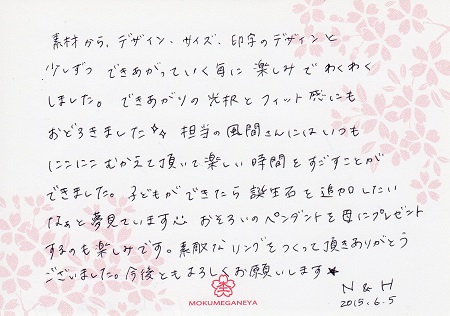 素材から、デザイン、サイズ、印字のデザインと
少しずつ できあがっていく毎に 楽しみでわくわく
しました。 できあがりの光沢とフィット感にも
おどろきました☆☆ 担当の風間さんにはいつも
にこにこ むかえて頂いて楽しい時間をすごすことが
できました。子どもができたら 誕生石を追加したい
なぁと夢見ています おそろいのペンダントを母にプレゼント
するのも楽しみです。素敵なリングをつくって頂きありがとう
ございました。今後ともよろしくお願いします★
N & H
2015.6.5
MOKUMEGANEYA